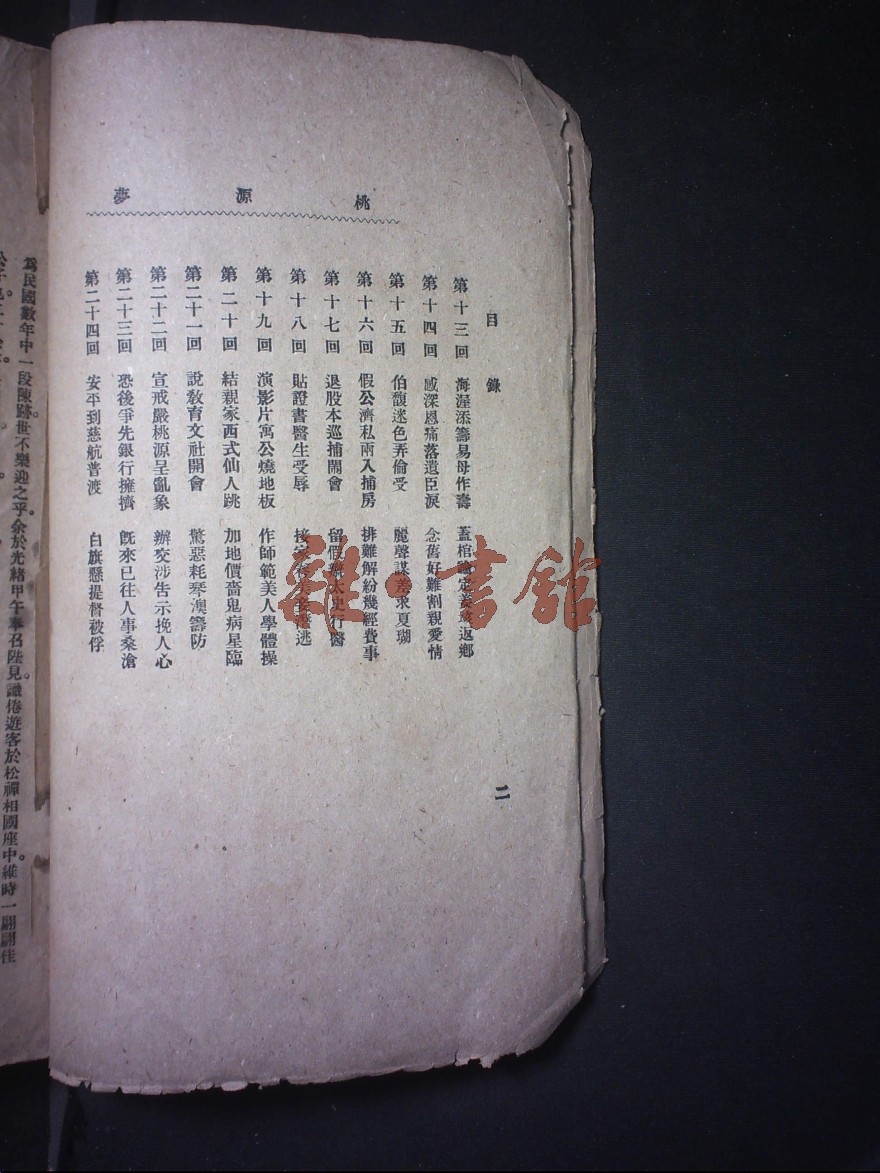 桃源夢
目錄
二
第十三回 海渥添籌易母作壽 蓋棺論定姜 返鄉
第十四回 感深恩痛落遺臣淚 念舊好難割親愛情
第十五回 伯馥迷色弄偷受 麗聲謀差求夏瑚
第十六回 假公濟私兩入捕房 排難解紛幾經費事
第十七回 退股本巡捕鬧會 留假 太史行醫
第十八回 貼證書醫生受辱 接 逃
第十九回 演影片寓公燒地板 作師範美人學體操
第二十回 結親家西式仙人跳 加地價嗇鬼病星臨
第二十一回 說敎育文社開會 驚惡耗琴澳籌防
第二十二回 宣戒嚴桃源呈亂象 辦交涉告示挽人心
第二十三回 恐後爭先銀行擁擠 旣來已往人事桑滄
第二十四回 安平到慈航普渡 白旗懸提督被俘
爲民國數年中一段陳跡世不樂迎之乎。余於光緒甲午奉召陛見。識倦遊客於松禪相國座中。維時一翩翩佳
雜·書館